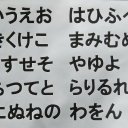 いうえお はひふへ
きくけこ まみむめ
しすせそ やゆよ
ちつてと らりるれ
にぬねの わをん